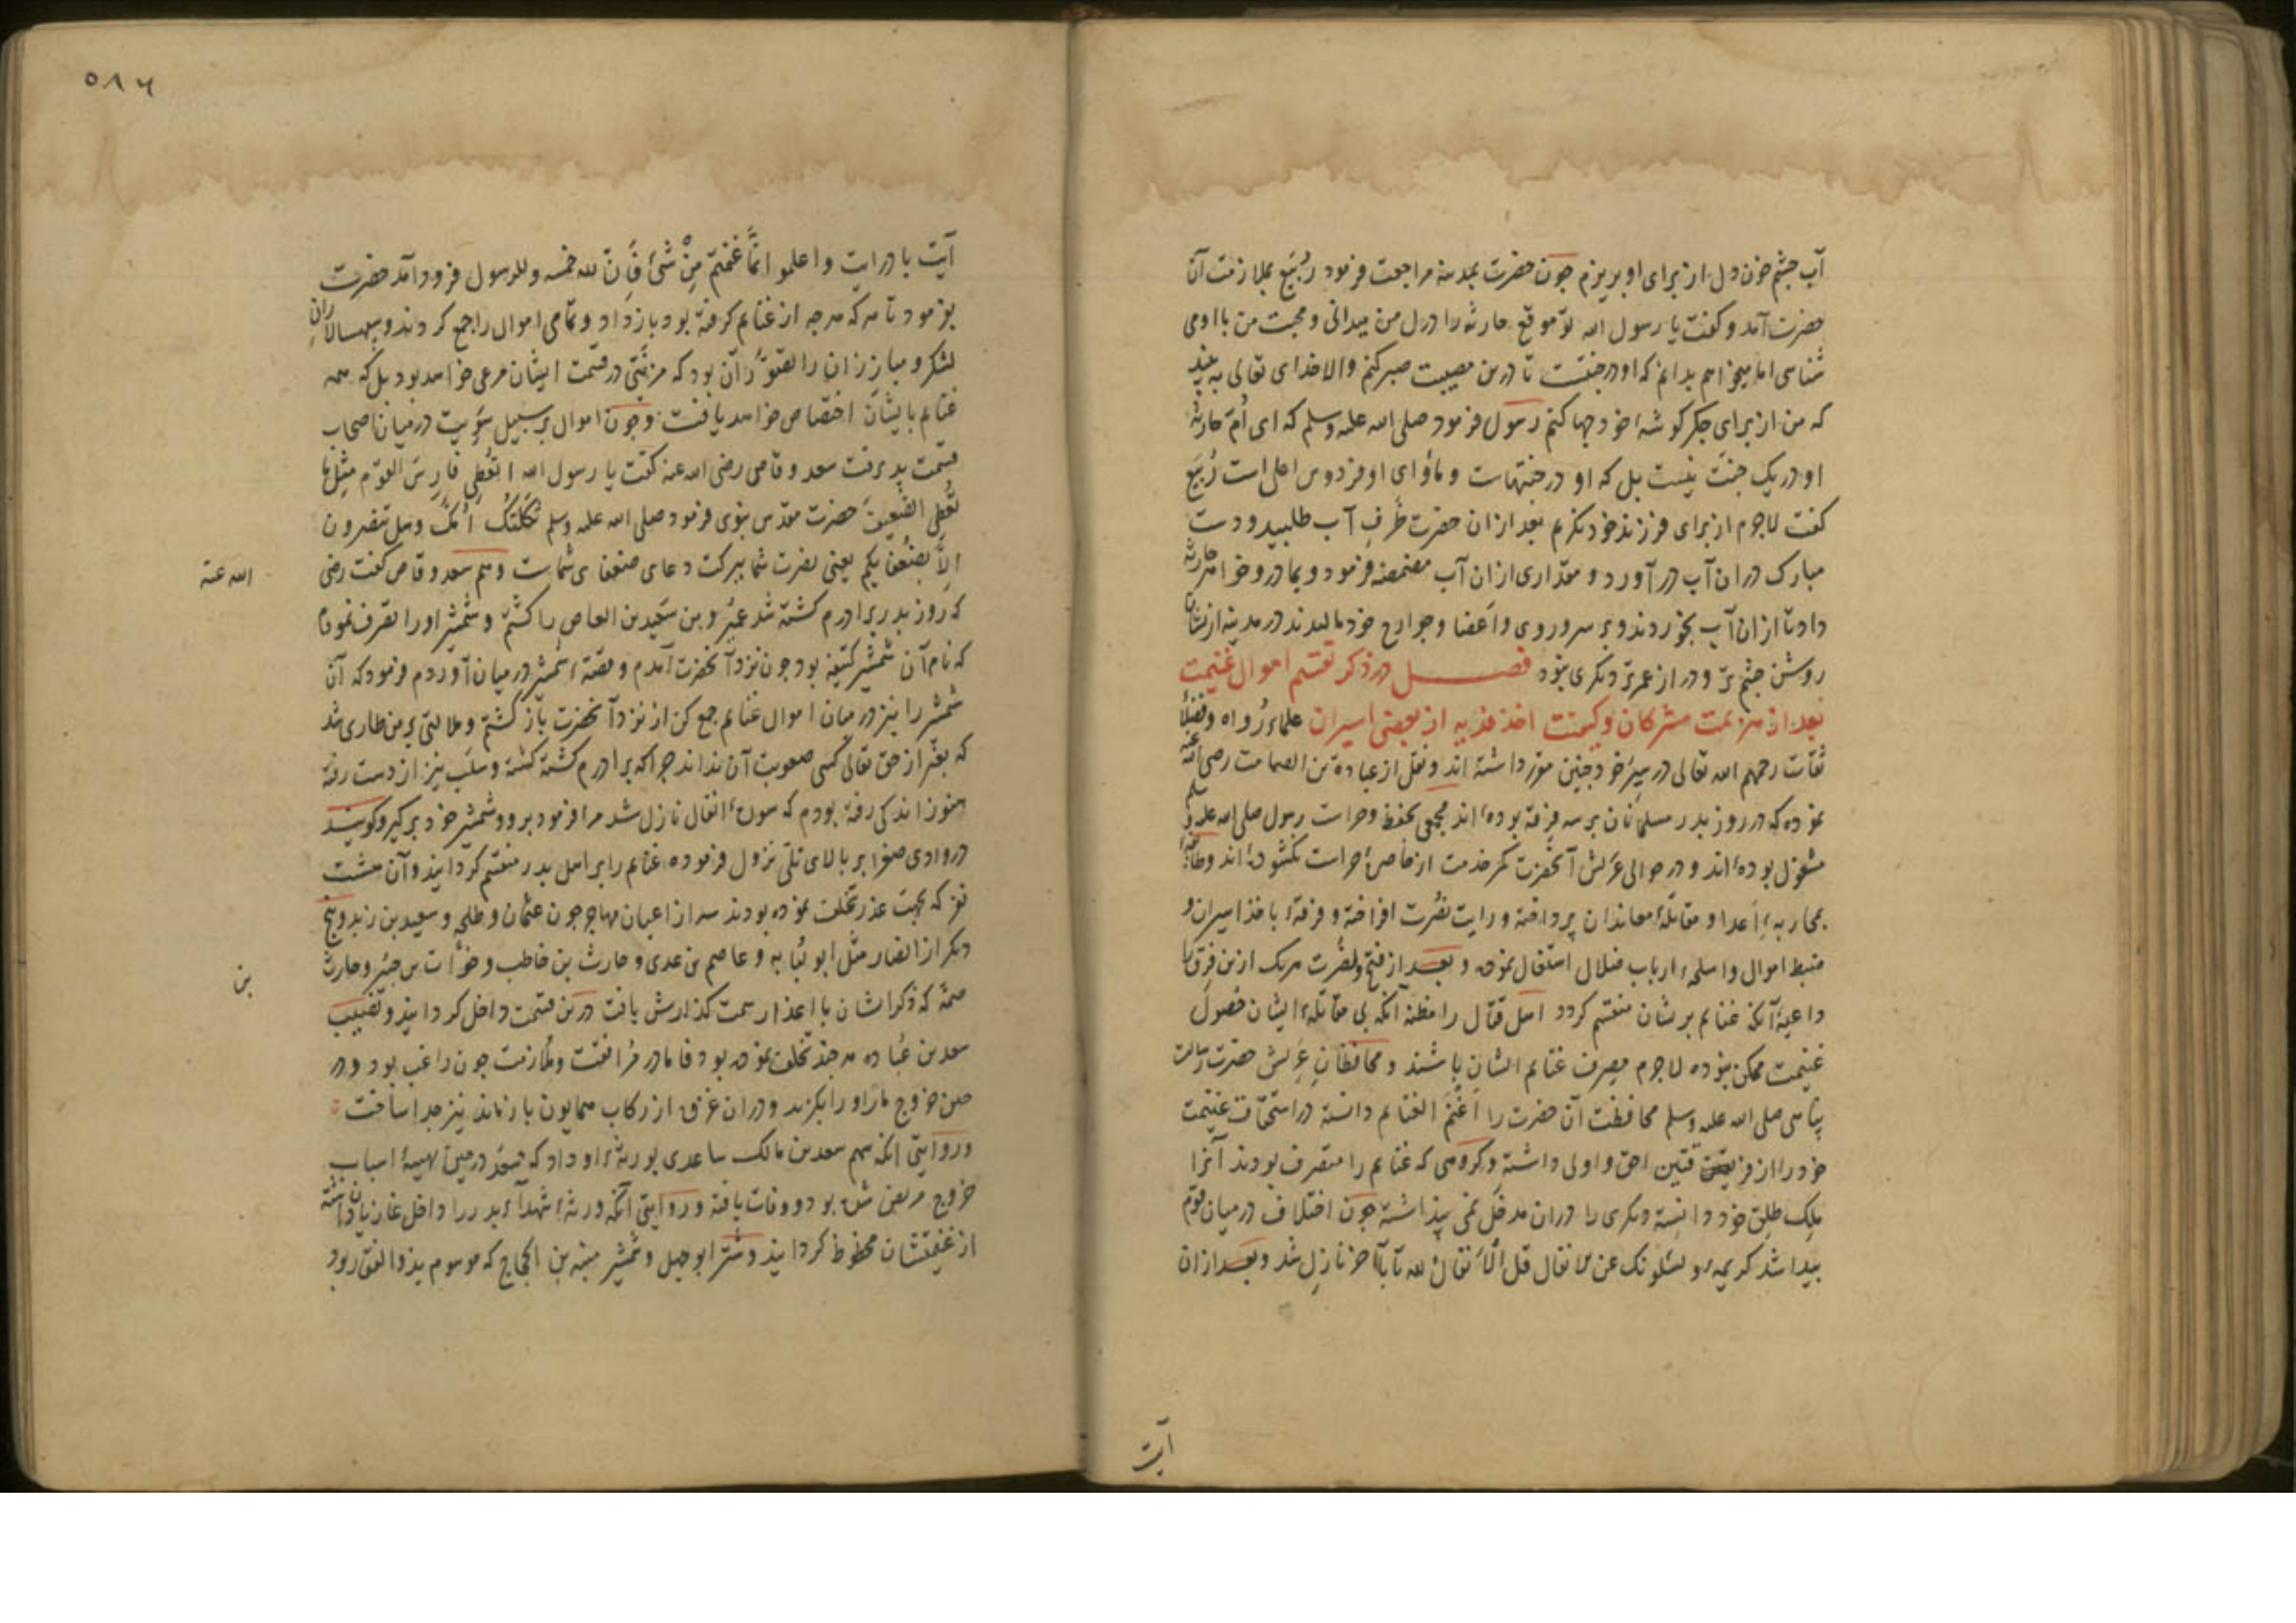 آب چشم خون دل از برای او بریزم چون حضرت بمدینه مراجعت فرمود رُبیّع بملازمت آن
حضرت آمد و کفت یا رسول الله تو موقع حارثه را در دل من میدانی و محبت من با او می
شناسی اما میخواهم بدانم که او در جنتست تا درین مصیبت صبر کنم والا خدای تعالی به بیند
که من از برای جکر کوشهٔ خود جها کنم رسول فرمود صلی الله علیه وسلم که ای اُمّ حارثه
او در یک جنت نیست بل که او در جنتهاست و ماوای او فردوس اعلی است رُبیّع
کفت لاجرم از برای فرزند خود نکریم بعد ازان حضرت ظرفِ آب طلبید و دست
مبارک در ان آب در آورد و مقداری ازان آب مضمضه فرمود و بمادر و خواهر حارثه
داد تا ازان آب بخوردند و بر سر و روی و اعضا و جوارح خود مالیدند در مدینه ازیشان
روشن چشم تر و دراز عمر تر دیکری نبود فصل در ذکر تقسیم اموال غنیمت
بعد از هزیمت مشرکان و کیفیت اخذ فدیه از بعضی اسیران علماء رُواه و فضلأ
ثقات رحمهم الله تعالی در سِیَر خود چنین مقرر داشته اند و نقل از عبادة بن الصامت رضی الله عنه
نموده که در روز بدر مسلمانان بر سه فرقه بوده‌اند جمعی بحفظ و حراست رسول صلی الله علیه و سلم
مشغول بوده‌اند و در حوالی عریش آنحضرت کمر خدمت از خاصرهٔ حراست نکشوده‌اند و طایفهٔ
بمحاربهٔ اعدا و مقاتلهٔ معاندان پرداخته و رایت نصرت افراخته و فرقهٔ باخذ اسیران و
ضبط اموال و اسلحهٔ ارباب ضلال اشتغال نموده و بعد از فتح و نصرت هریک ازین فِرَق را
داعیهٔ آنکه غنایم بریشان منقسم کردد اهل قتال را مظنهٔ آنکه بی مقاتلهٔ ایشان حصول
غنیمت ممکن نبوده لاجرم مصرف غنایم ایشان باشند و محافظانِ عریش حضرت رسالت
پناهی صلی الله علیه وسلم محافظت آن حضرت را اغنم الغنایم دانسته در استحقاق غنیمت
خود را از فریقین احق و اولی داشته و کروهی که غنایم را متصرف بودند آنرا
مِلک طِلق خود دانسته دیکری را دران مدخل نمی پنداشته چون اختلاف در میان قوم
پیدا شد کریمهٔ و یسئلونک عن الانفال قل الانفال لله تا بآخر نازل شد و بعد ازان
آیت
۵۸۶
آیت با درایت واعلموا انّما غنمتم مِن شیٔ فأنّ لله خمسه وللرسول فرود آمد حضرت
بفرمود تا هر که هر چه از غنایم کرفته بود باز داد و تمامی اموال را جمع کردند و سپهسالارانِ
لشکر و مبارزان را تصوّر آن بود که مزیّتی در قسمت ایشان مرعی خواهد بود بل که همه
غنایم بایشان اختصاص خواهد یافت و چون اموال بر سبیل سویت در میان اصحاب
قسمت پذیرفت سعد وقاص رضی الله عنه کفت یا رسول الله اتُعطی فارسَ القوم مِثلَ ما
تُعطی الضعیفَ حضرت مقدس نبوی فرمود صلی الله علیه وسلم ثکلتک اُمُّک وهل تنصرون
الا بضعفایکم یعنی نصرت شما ببرکت دعای ضعفای شماست و هم سعد وقاص کفت رضی الله عنه
که روز بدر برادرم کشته شد عُمیر و من سعید بن العاص را کشتم و شمشیر او را تصرف نمودم
که نام آن شمشیر کتیفه بود چون نزد آنحضرت آمدم و قصهٔ شمشیر در میان آوردم فرمود که آن
شمشیر را نیز در میان اموال غنایم جمع کن از نزد آنحضرت باز کشتم و ملالتی بر من طاری شد
که بغیر از حق تعالی کسی صعوبت آن نداند چرا که برادرم کشته کشته و سلب نیز از دست رفته
هنوز اندکی رفته بودم که سورهٔ انفال نازل شد مرا فرمود برو و شمشیر خود بر کیر و کویند
در وادی صفرا بر بالای تلّی نزول فرموده غنایم را بر اهل بدر منقسم کردانید و آن هشت
نفر که بجهت عذر تخلف نموده بودند سه از اعیان مهاجر چون عثمان و طلحه و سعید بن زید و پنج
دیکر از انصار مثل ابو لُبابه و عاصم بن عدی و حارث بن حاطب و خوّات بن جبیر و حارث بن
صمة که ذکر ایشان با اعذار سمت کذارش یافت درین قسمت داخل کردانید و نصیب
سعد بن عُباده هر چند تخلف نموده بود فاما در مُرافقت و ملازمت چون راغب بود و در
حین خروج مار او را بکزید و دران غزوه از رکاب همایون باز ماند نیز جدا ساخت
و روایتی آنکه سهم سعد بن مالک ساعدی بورثهٔ او داد که سعد در حین تهیهٔ اسباب
خروج مریض شده بود و وفات یافته و روایتی آنکه ورثهٔ شهدأ بدر را داخل غازیان داشته
از غنیمتشان محظوظ کردانید و شتر ابو جهل و شمشیر منبه بن الحجاج که موسوم بذوالفقار بود